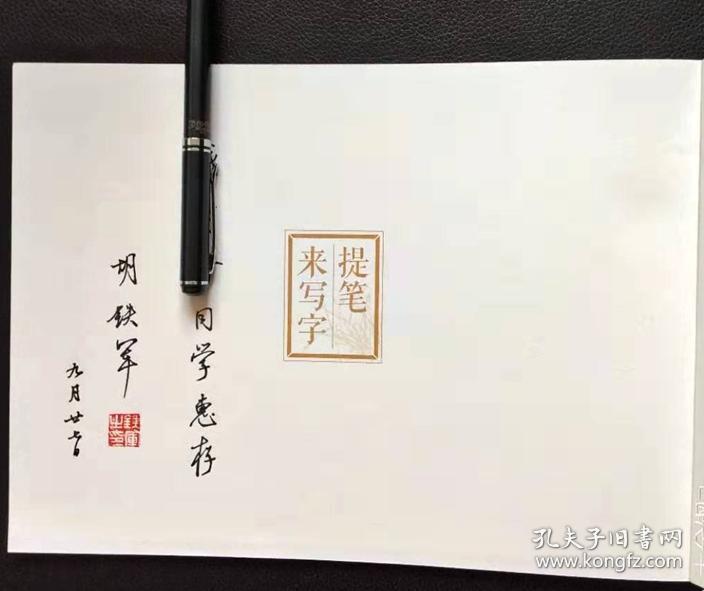 提笔
来写字
同学惠存
胡铁军
九月廿七日
铁军
之印
孔夫子旧书网